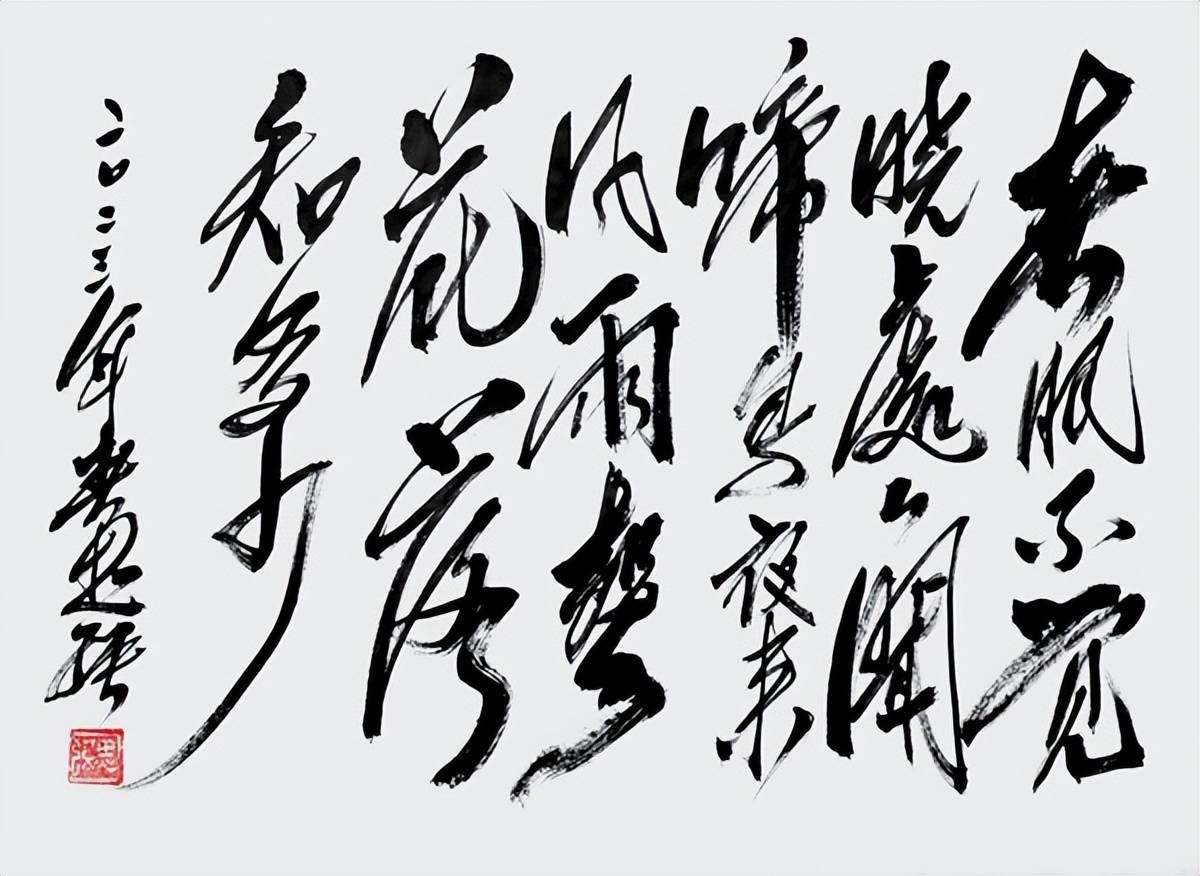 春眠不觉
晓處々聞
啼鸟夜来
风雨聲
花落
知多少
二〇二三年